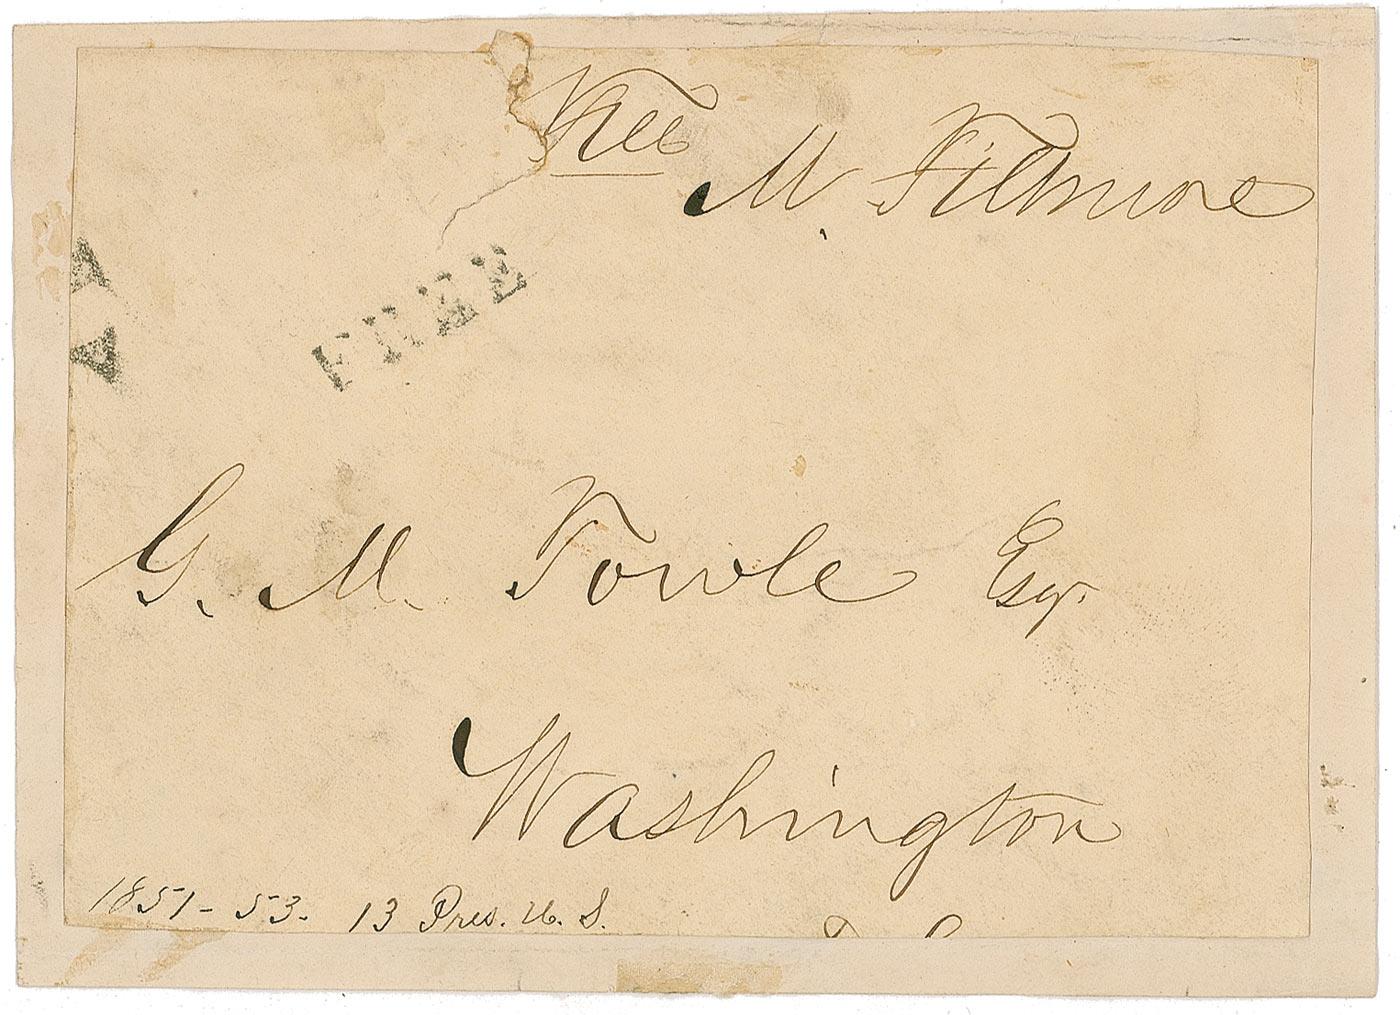 Free
M. Fillmore
FREE
G. M. Fowle Esqr.
Washington
1851-53. 13 Pres. U. S.